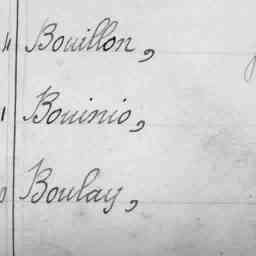 Bouillon,
Bouinio,
Boulay,